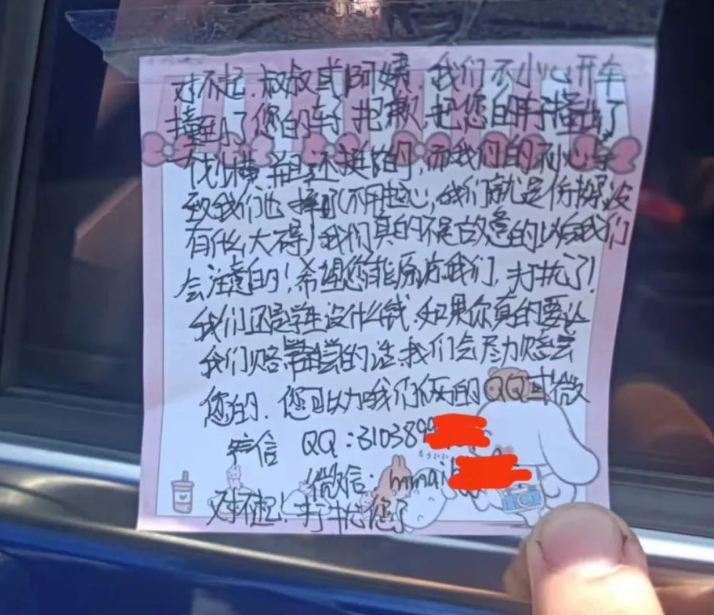 对不起,叔叔或阿姨,我们不小心开车
撞到了您的车,抱歉,把您的车子撞出了
划横,而我们的不小心导
致我们也摔了(不用担心,我们就是你擦没
有什么大碍)我们真的不是故意的以后我们
会注意的!希望您能原谅我们,打扰了!
我们还是学生没什么钱,如果你真的要让
我们赔偿的话,我们会尽力赔偿
您的.您可以加我们俩的QQ或微
信 QQ:310389
微信:
对不起!打扰您了